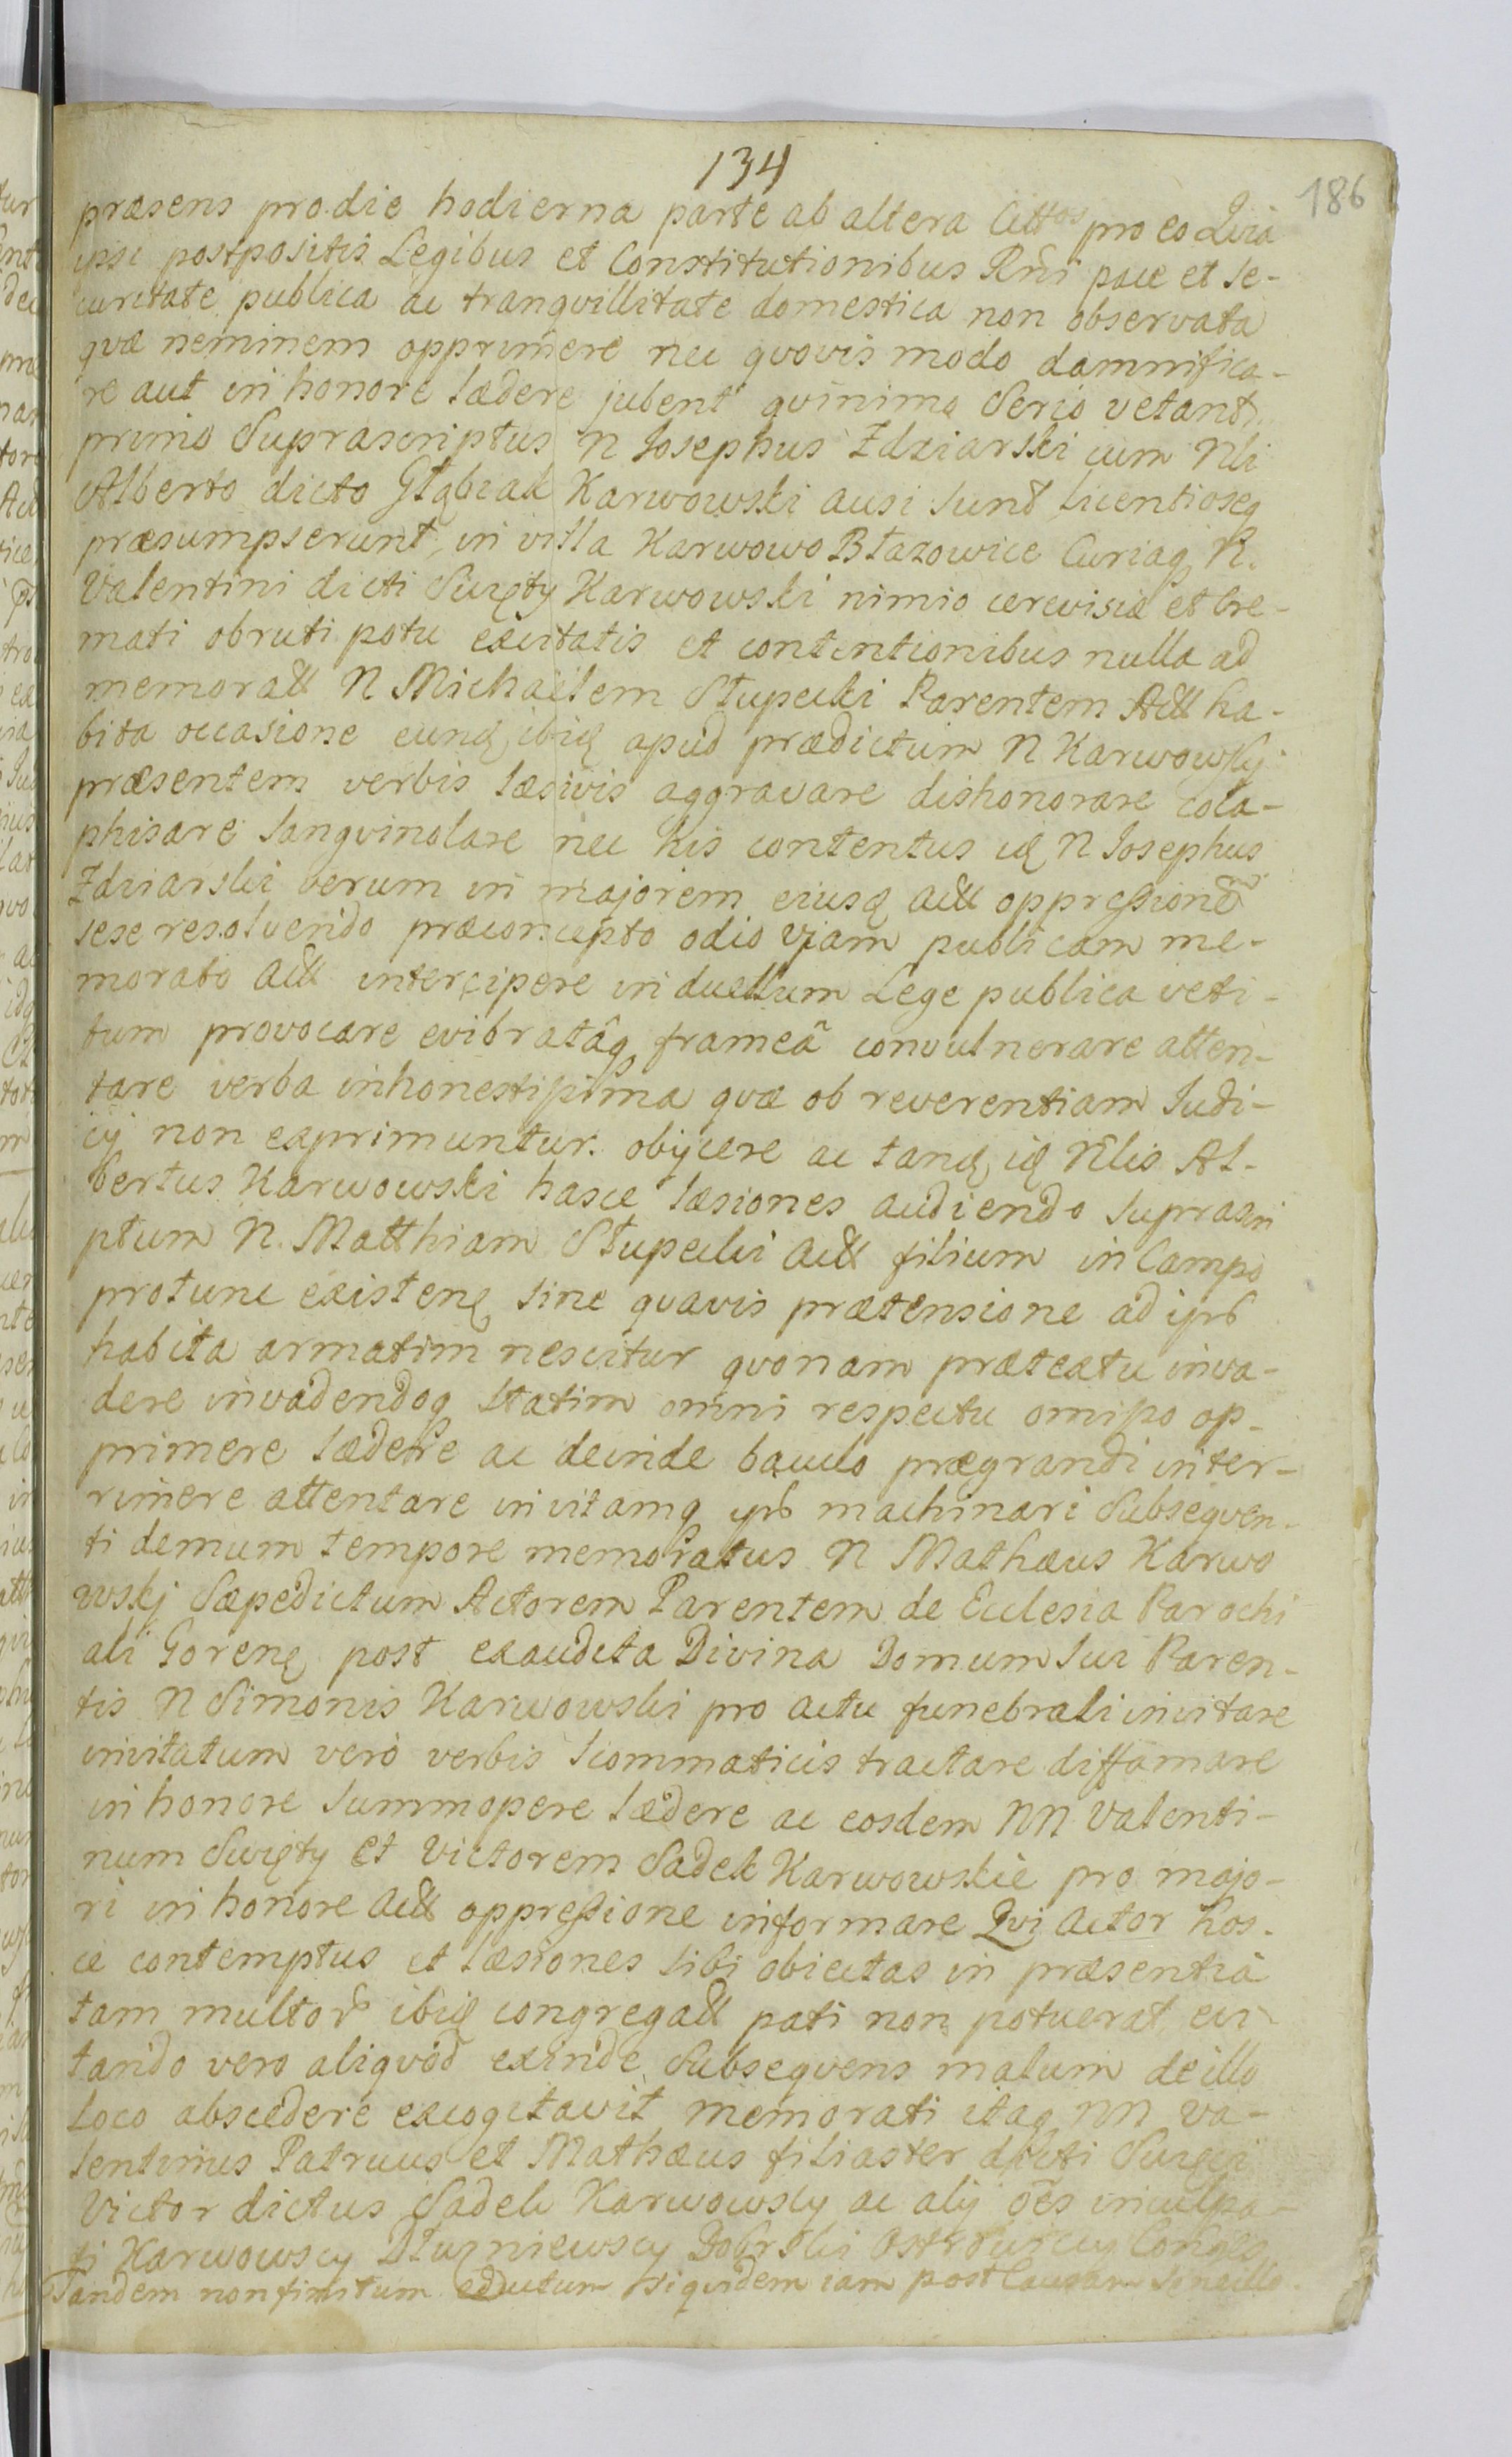 134
186
præsens pro die hodierna parte ab altera Cittos pro eo Qvia
ipsi postpositis Legibus et Constitutionibus Rni pace et se-
curitate publica ac tranqvillitate domestica non observata
qvæ neminem opprimere nec qvovis modo damnifica-
re aut in honore lædere jubent qvinimo Serio vetant
primo Suprascriptus N Josephus Zdziarski cum Nli
Alberto dicto Głąbiak Karwowski ausi sunt licentioseq
præsumpserunt in villa Karwowo Błazowice Curiaq N.
Valentini dicti Swięty Karwowski nimio cerevisiæ et cre-
mati obruti potu excitatis et contentionibus nulla ad
memorall N Michaelem Słupecki Parentem Acll ha-
bita occasione eunq ibiq apud prædictum N Karwowskj
præsentem verbis læsivis aggravare dishonorare cola-
phisare sangvinolare nec his contentus iq N Josephus
Zdziarski verum in majorem eiusq acll oppressionem
sese resolvendo præconcepto odio vjam publicam me-
morato acll intercipere in duellum Lege publica veti-
tum provocare evibratâq frameâ convulnerare atten-
tare verba inhonestissima qvæ ob reverentiam Judi-
cij non exprimuntur. obijcere ac tanq iq Nlis Al-
bertus Karwowski hasce læsiones audiendo suprascri
ptum N. Matthiam Słupecki acll filium in Campo
protunc existenq sine qvavis prætensione ad ips
habita armatim nescitur qvonam prætextu inva-
dere invadendoq statim omni respectu omisso op-
primere lædere ac deinde baculo prægrandi inter-
rimere attentare in vitamq ips machinari Subseqven-
ti demum tempore memoratus N Mathæus Karwo
wskj Sæpedictum Actorem Parentem de Ecclesia Parochi
ali Gorenq post exaudita Divina Domum sui Paren-
tis N Simonis Karwowski pro actu funebrali invitare
invitatum verò verbis scommaticis tractare diffamare
in honore summopere lædere ac eosdem NN Valenti-
num Swięty et Victorem Sadek Karwowskie pro majo-
ri in honore acll oppressione informare Qvi actor hos-
ce contemptus et læsiones sibi obiectas in præsentia
tam multor ibiq congregall pati non potuerat evi-
tando vero aliqvod exinde Subseqvens malum de illo
loco abscedere excogitavit memorati itaq NN Va-
lentinus Patruus et Mathæus filiaster dicti Swięci
Victor dictus Sadek Karwowscy ac alij oes inculpa-
ti Karwowscy Dłuzniewscy Dobrski
Tandem non finitum siqvidem iam post Causam